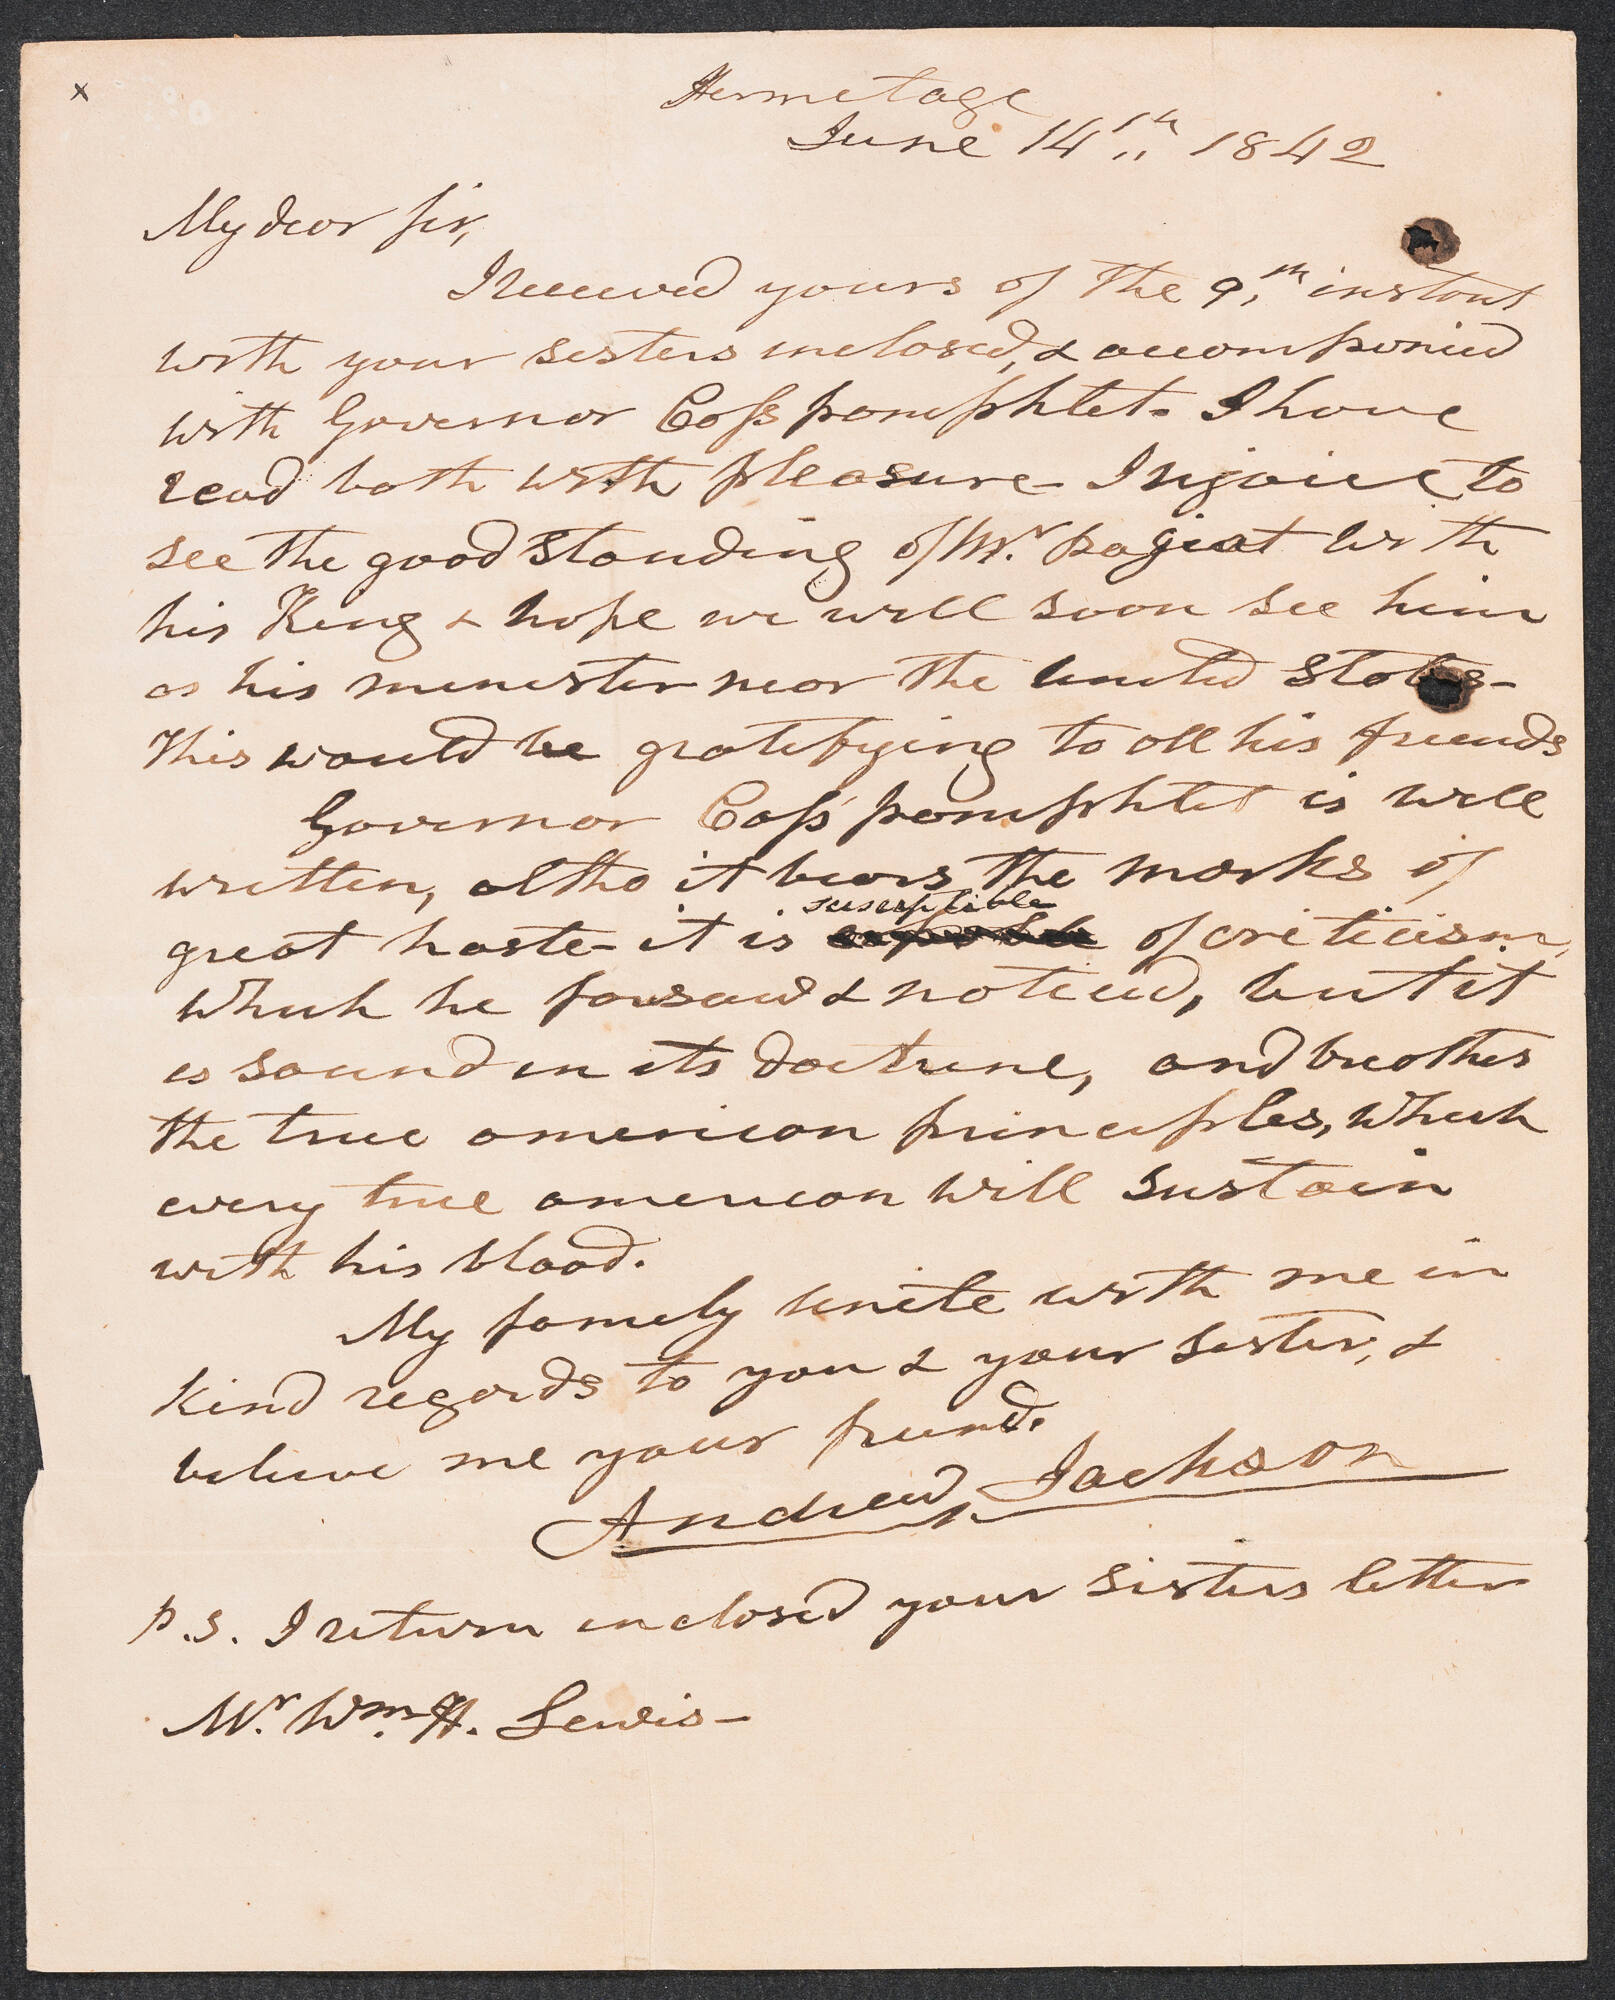 x
Hermetage
June 14th 1842
My dear sir,
I received yours of the 9th instant
with your sisters inclosed, & accompanied
with Governor Cass pamphlet. I have
read both with pleasure - I rejoice to
see the good standing of Mr. Pagiot with
his King & hope we will soon see him
as his minister near the United States -
This would be gratifying to all his friends
Governor Cass' pamphlet is well
written, altho it bears the marks of
great haste - it is susceptible of criticism,
which he forsaw & noticed, but it
is sound in its doctrine, and breathes
the true american principles, which
every true american will sustain
with his blood.
My family unite with me in
kind regards to you & your sister, &
believe me your friend.
Andrew Jackson
P.S. I return enclosed your sisters letter
Mr. Wm. H. Lewis -